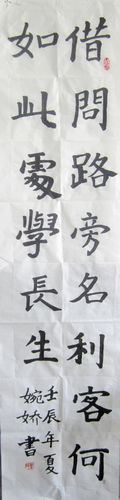 借問路旁名利客何
如此處學長生
壬辰年夏
婉娇書